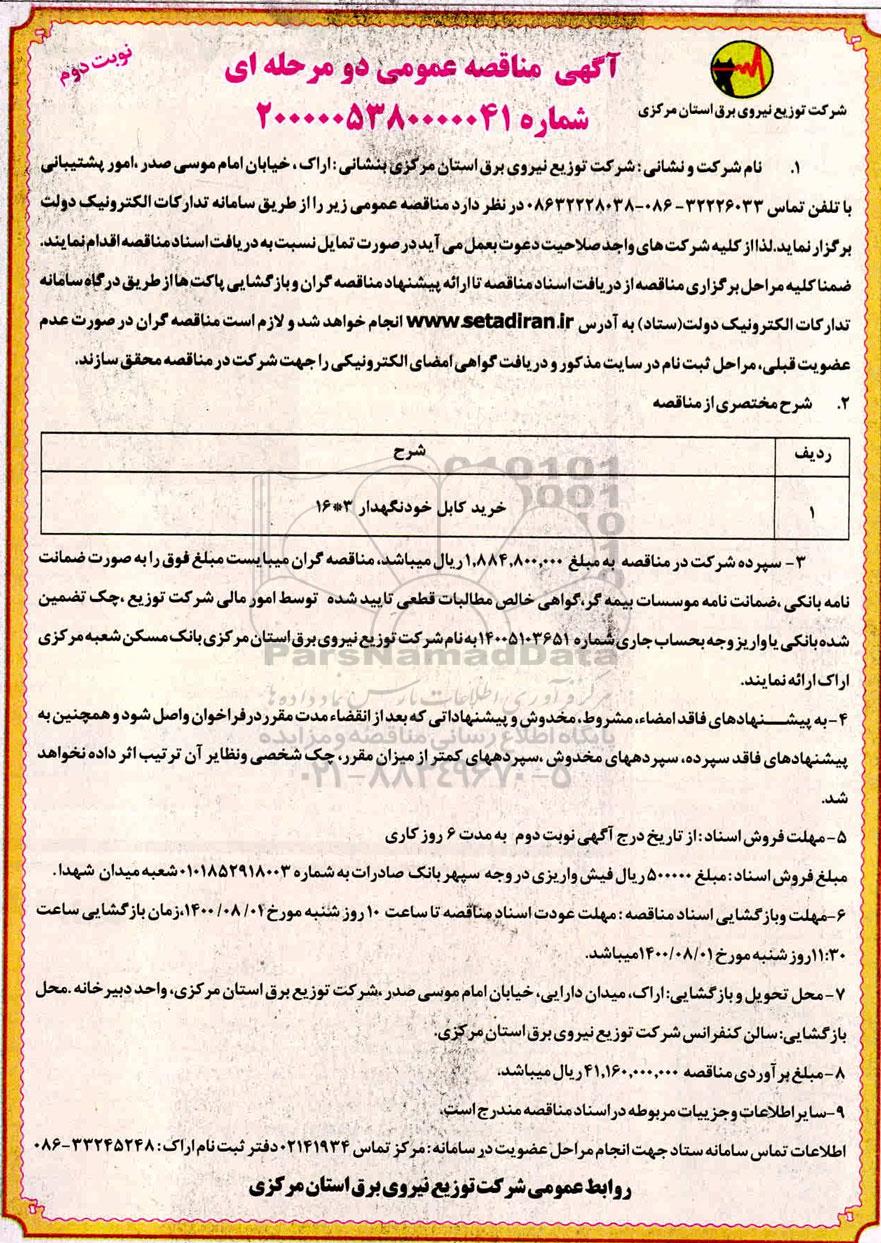 نوبت دوم
آگهی مناقصه عمومی دو مرحله ای
شماره ۲۰۰۰۰۰۵۳۸۰۰۰۰۰۴۱
شرکت توزیع نیروی برق استان مرکزی
۱. نام شرکت و نشانی : شرکت توزیع نیروی برق استان مرکزی بنشانی : اراک ، خیابان امام موسی صدر ،امور پشتیبانی
با تلفن تماس ۳۲۲۲۶۰۳۳-۰۸۶-۰۸۶۳۲۲۲۸۰۳۸ در نظر دارد مناقصه عمومی زیر را از طریق سامانه تدارکات الکترونیک دولت
برگزار نماید.لذا از کلیه شرکت های واجد صلاحیت دعوت بعمل می آید در صورت تمایل نسبت به دریافت اسناد مناقصه اقدام نمایند.
ضمنا کلیه مراحل برگزاری مناقصه از دریافت اسناد مناقصه تا ارائه پیشنهاد مناقصه گران و بازگشایی پاکت ها از طریق درگاه سامانه
تدارکات الکترونیک دولت(ستاد) به آدرس www.setadiran.ir انجام خواهد شد و لازم است مناقصه گران در صورت عدم
عضویت قبلی، مراحل ثبت نام در سایت مذکور و دریافت گواهی امضای الکترونیکی را جهت شرکت در مناقصه محقق سازند.
۲. شرح مختصری از مناقصه
ردیف شرح
۱ خرید کابل خودنگهدار ۳*۱۶
۳- سپرده شرکت در مناقصه به مبلغ ۱,۸۸۴,۸۰۰,۰۰۰ ریال میباشد، مناقصه گران میبایست مبلغ فوق را به صورت ضمانت
نامه بانکی ،ضمانت نامه موسسات بیمه گر،گواهی خالص مطالبات قطعی تایید شده توسط امور مالی شرکت توزیع ،چک تضمین
شده بانکی یا واریز وجه بحساب جاری شماره ۱۴۰۰۵۱۰۳۶۵۱ به نام شرکت توزیع نیروی برق استان مرکزی بانک مسکن شعبه مرکزی
اراک ارائه نمایند.
ParsNamadData
مرکز فرآوری اطلاعات پارس نماد داده ها
۴-به پیشـــنهادهای فاقد امضاء، مشروط، مخدوش و پیشنهاداتی که بعد از انقضاء مدت مقرر در فراخوان واصل شود و همچنین به
پایگاه اطلاع رسانی مناقصه و مزایده
پیشنهادهای فاقد سپرده، سپردههای مخدوش ،سپردههای کمتر از میزان مقرر، چک شخصی ونظایر آن ترتیب اثر داده نخواهد
۰۲۱-۸۸۳۴۹۶۷۰-۵
شد.
۵-مهلت فروش اسناد : از تاریخ درج آگهی نوبت دوم به مدت ۶ روز کاری
مبلغ فروش اسناد : مبلغ ۵۰۰۰۰۰ ریال فیش واریزی در وجه سپهر بانک صادرات به شماره ۰۱۰۱۸۵۲۹۱۸۰۰۳ شعبه میدان شهدا .
۶-مهلت وبازگشایی اسناد مناقصه : مهلت عودت اسناد مناقصه تا ساعت ۱۰ روز شنبه مورخ ۱۴۰۰/۰۸/۰۱،زمان بازگشایی ساعت
۱۱:۳۰ روز شنبه مورخ ۱۴۰۰/۰۸/۰۱ میباشد.
۷- محل تحویل و بازگشایی: اراک، میدان دارایی، خیابان امام موسی صدر ،شرکت توزیع برق استان مرکزی، واحد دبیرخانه .محل
بازگشایی: سالن کنفرانس شرکت توزیع نیروی برق استان مرکزی.
۸-مبلغ برآوردی مناقصه ۴۱,۱۶۰,۰۰۰,۰۰۰ ریال میباشد.
۹-سایر اطلاعات و جزییات مربوطه در اسناد مناقصه مندرج است.
اطلاعات تماس سامانه ستاد جهت انجام مراحل عضویت در سامانه : مرکز تماس ۰۲۱۴۱۹۳۴ دفتر ثبت نام اراک : ۳۳۲۴۵۲۴۸-۰۸۶
روابط عمومی شرکت توزیع نیروی برق استان مرکزی